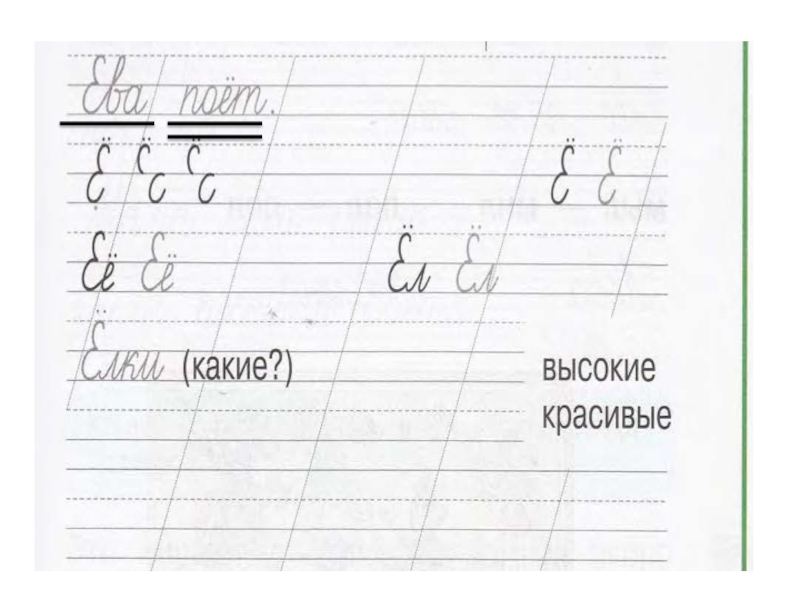 Ева поёт.
Ё Ё Ё Ё Ё
Её Её Ёл Ёл
Ёлки (какие?) высокие
красивые